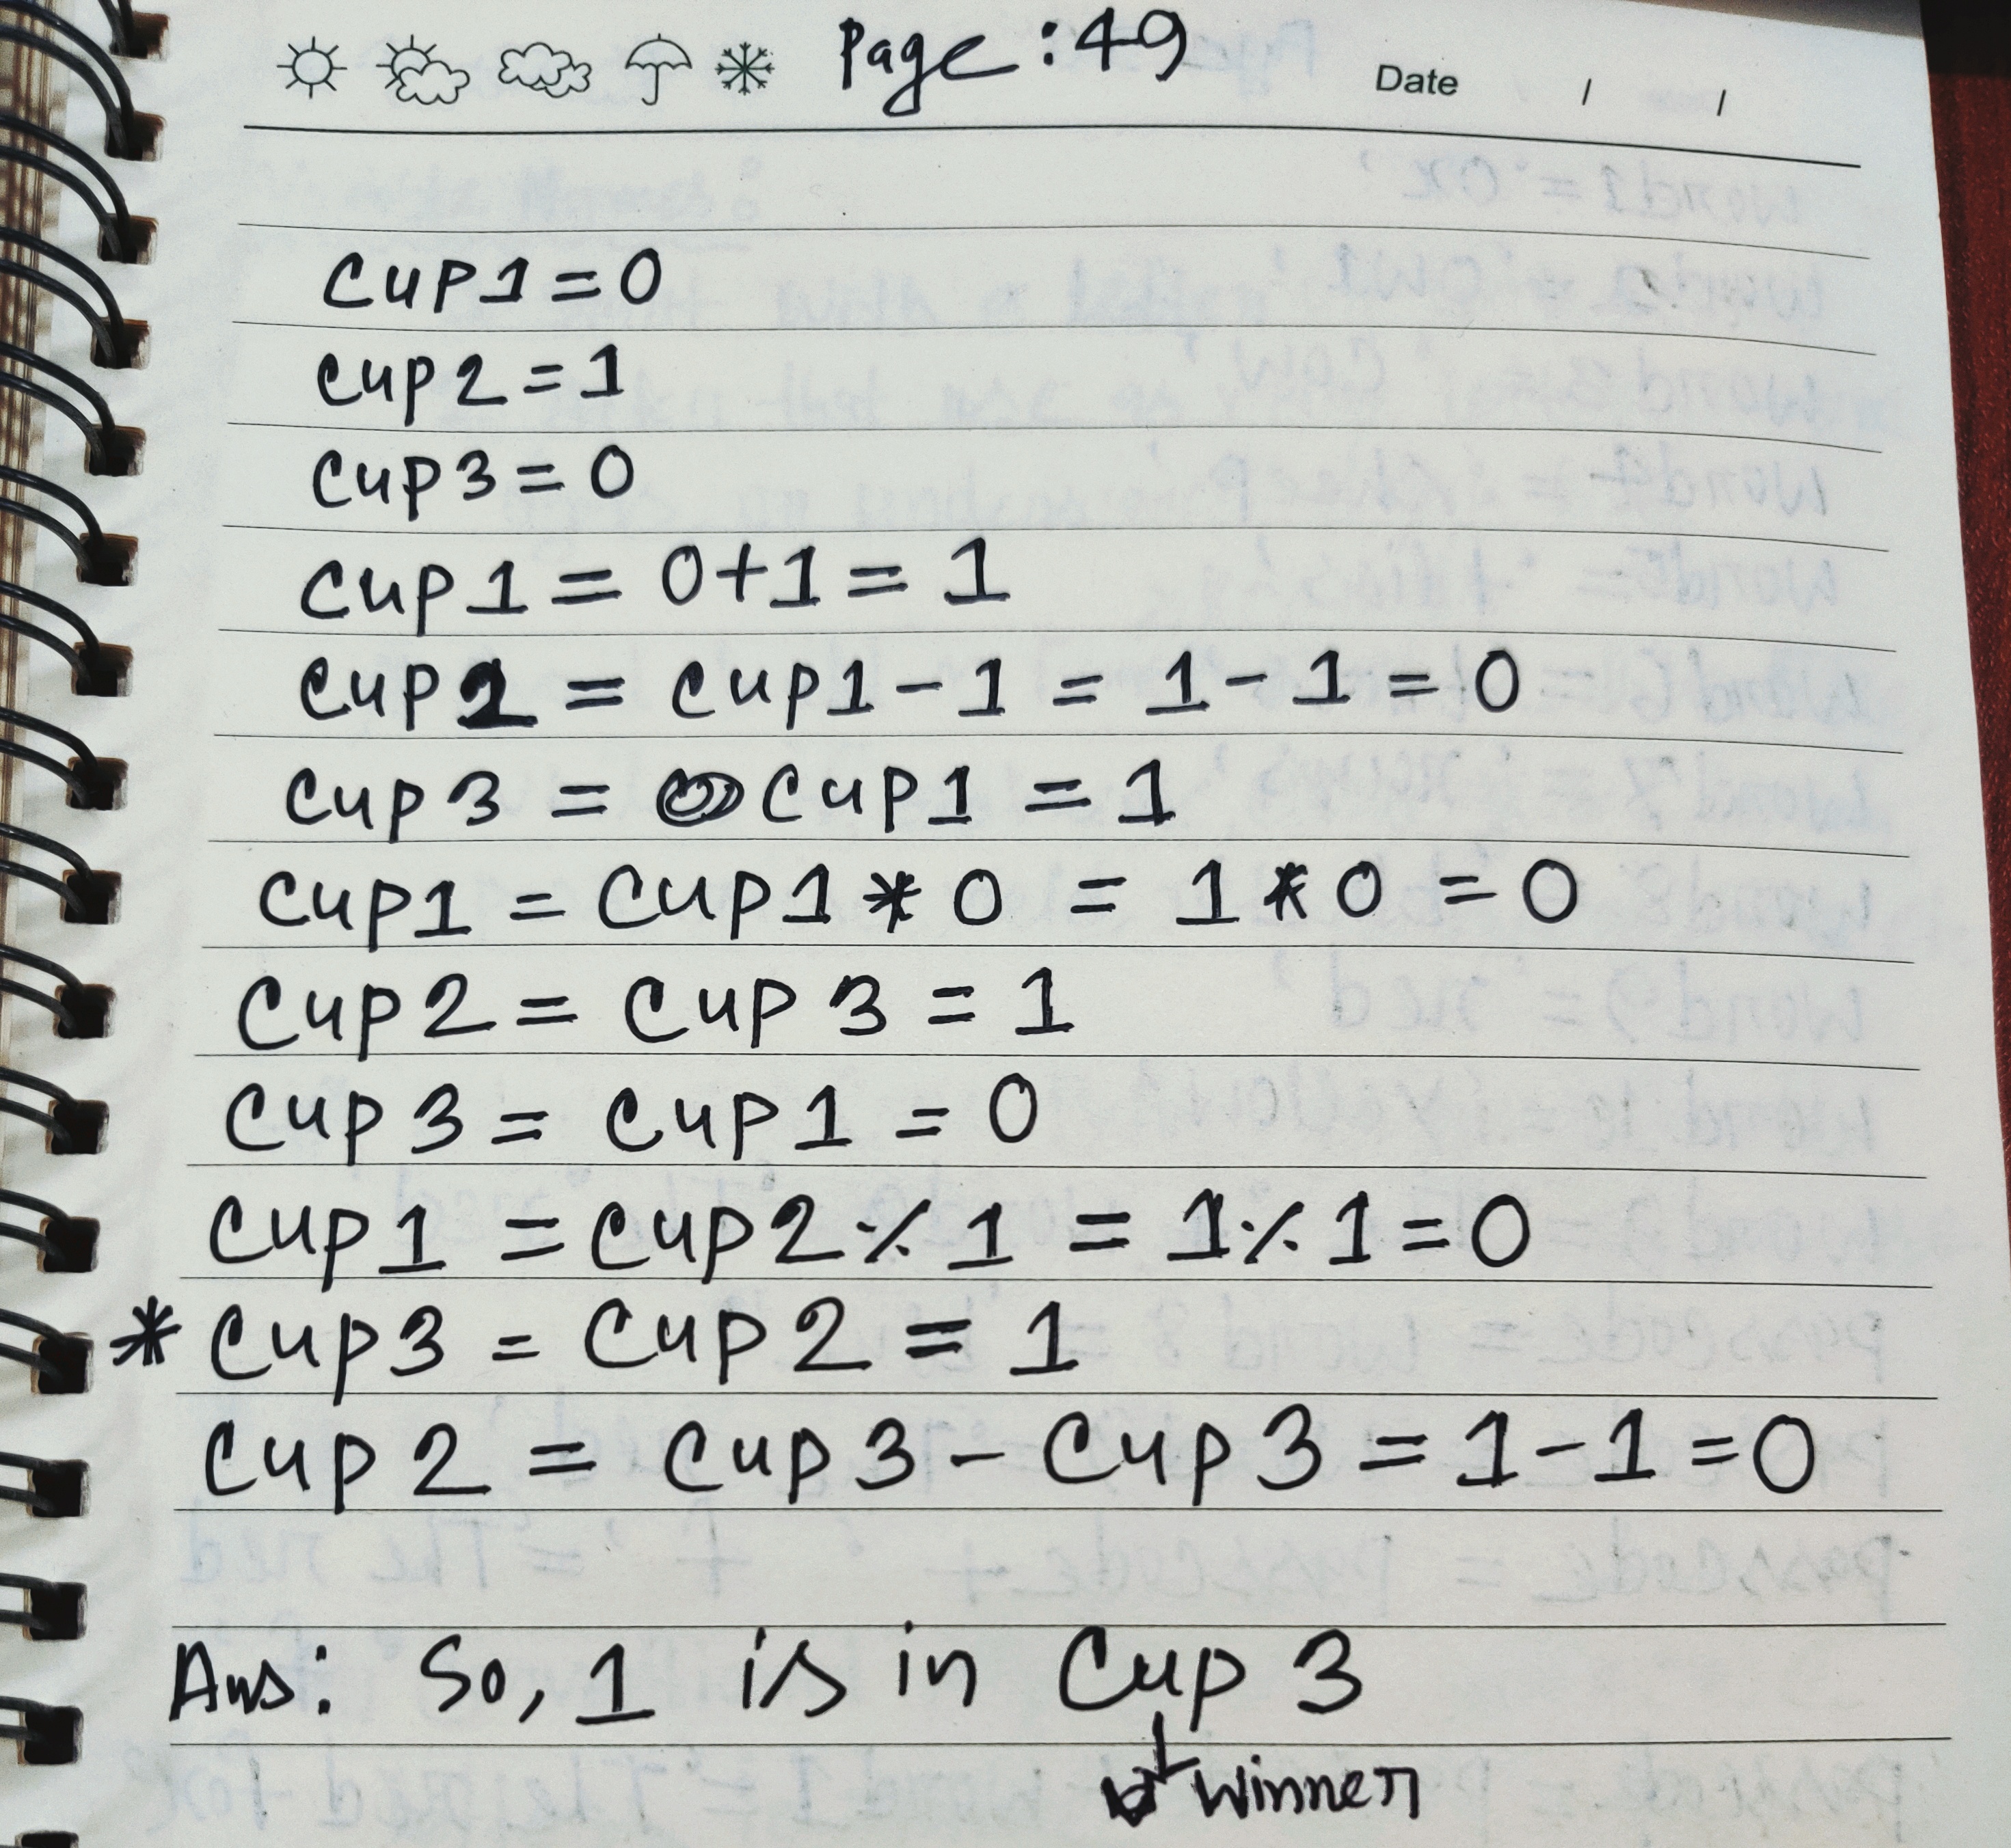 Page: 49 Date / /
cup1 = 0
cup2 = 1
cup3 = 0
cup1 = 0+1 = 1
cup2 = cup1 - 1 = 1 - 1 = 0
cup3 = cup1 = 1
cup1 = cup1 * 0 = 1 * 0 = 0
cup2 = cup3 = 1
cup3 = cup1 = 0
cup1 = cup2 % 1 = 1 % 1 = 0
* cup3 = cup2 = 1
cup2 = cup3 - cup3 = 1 - 1 = 0
Ans: So, 1 is in Cup 3
winner